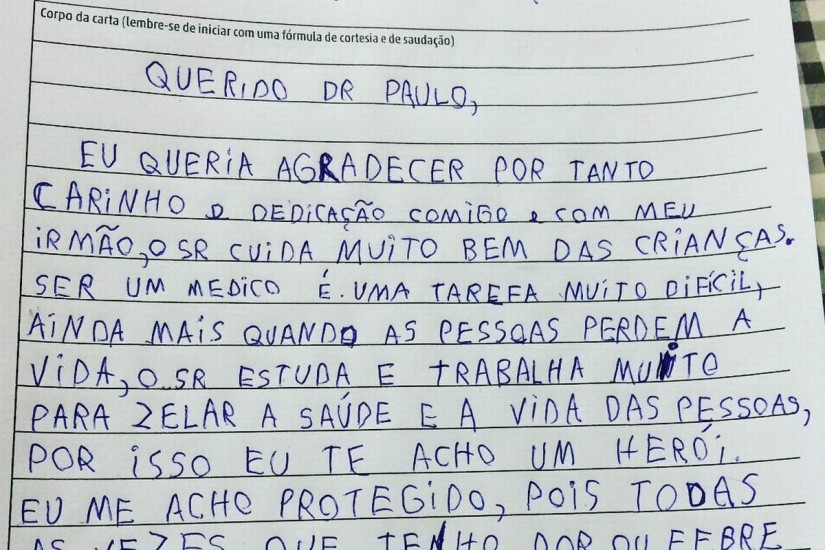 Corpo da carta (lembre-se de iniciar com uma fórmula de cortesia e de saudação)
QUERIDO DR PAULO,
EU QUERIA AGRADECER POR TANTO
CARINHO e DEDICAÇÃO COMIGO e COM MEU
IRMÃO, O SR CUIDA MUITO BEM DAS CRIANÇAS.
SER UM MEDICO É. UMA TAREFA MUITO DIFÍCIL,
AINDA MAIS QUANDO AS PESSOAS PERDEM A
VIDA, O SR ESTUDA E TRABALHA MUITO
PARA ZELAR A SAÚDE E A VIDA DAS PESSOAS,
POR ISSO EU TE ACHO UM HERÓI.
EU ME ACHO PROTEGIDO, POIS TODAS
AS VEZES QUE TENHO DOR OU FEBRE